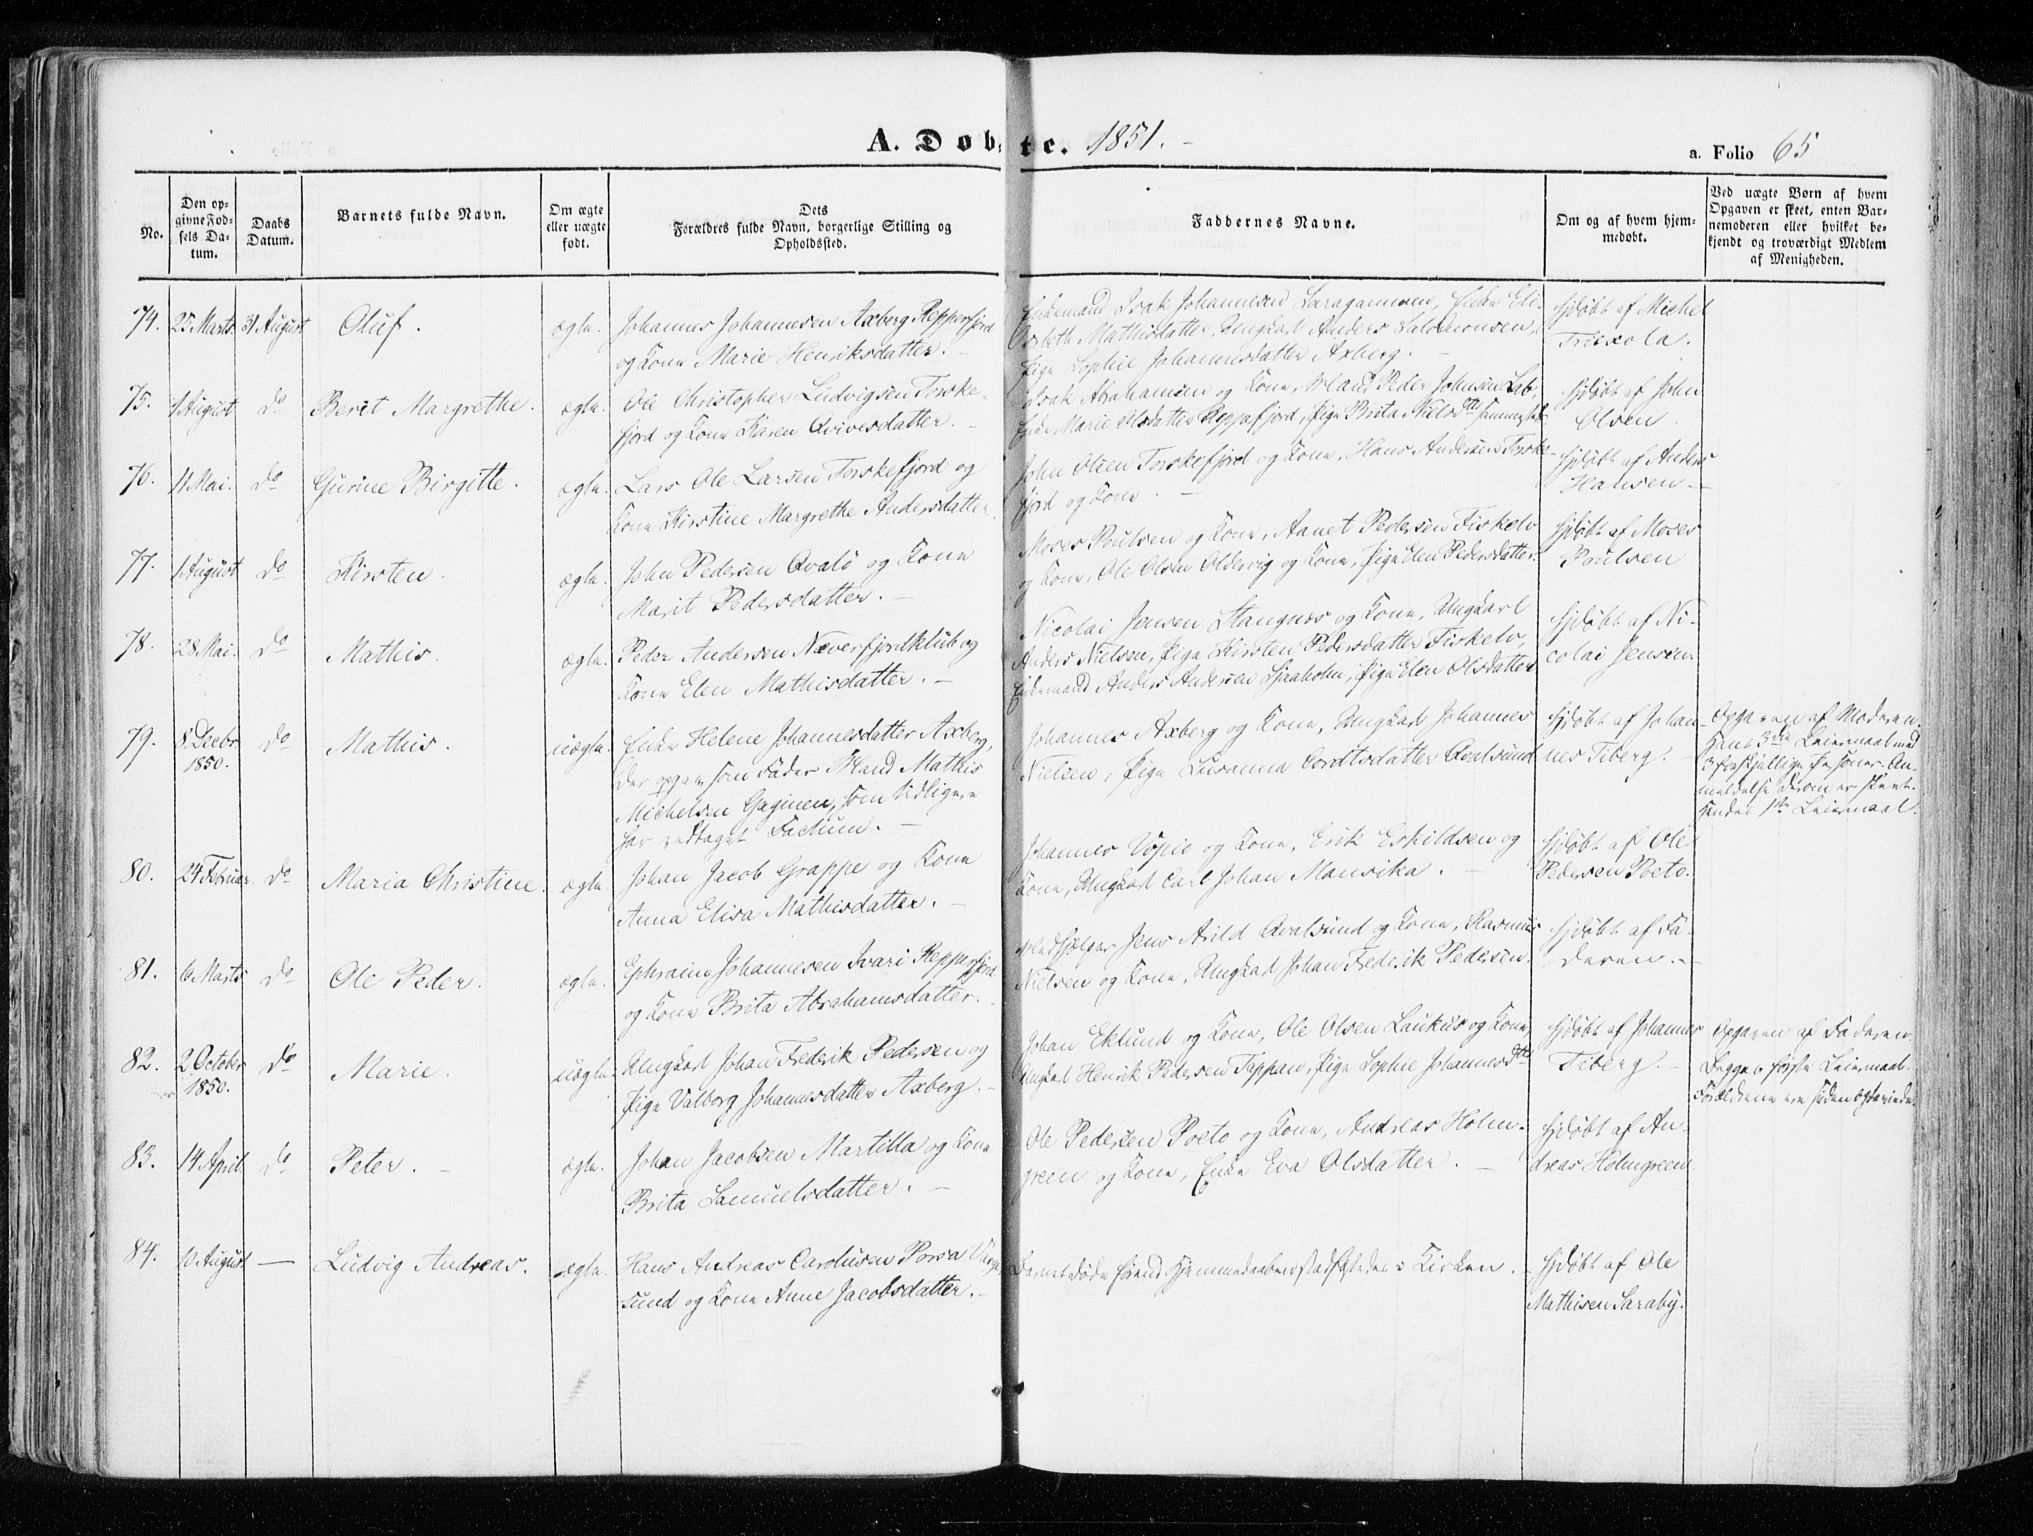 A. Døbte. 1851.
a. Folio 65
No.
Den opgivne Fødsels Datum.
Daabs Datum.
Barnets fulde Navn.
Om ægte eller uægte født.
Dets Forældres fulde Navn, borgerlige Stilling og Opholdssted.
Faddernes Navne.
Om og af hvem hjemmedøbt.
Ved uægte Børn af hvem Opgaven er skeet, enten Barnemoderen eller hvilket bekjendt og troværdigt Medlem af Menigheden.
74. 25 Marts 31 August Oluf. ægte.
Johannes Johannesen Axberg Repparfjord
og Kone Marie Henriksdatter. —
Enkemand Isak Johannesen Laragammen, Enke Eli-
sebeth Mathisdatter, Ungkarl Anders Salomonsen,
Pige Sophie Johannesdatter Axberg. —
Hjdøbt af Michel
75. 1 August do Berit Margrethe. ægte.
Ole Christopher Ludvigsen Torske-
fjord og Kone Karen Qvivesdatter. —
Isak Abrahamsen og Kone, Mand Peder Johnsen
Enke Marie Olsdatter Reppefjord, Pige Brita Nielsdtr
Hjdøbt af John
Olsen.
76. 11 Mai. do Gurine Birgitte. ægte.
Lars Ole Larsen Torskefjord og
Kone Kirstine Margrethe Andersdatter.
John Olsen Torskefjord og Kone, Hans Andersen Torske-
fjord og Kone. —
Hjdøbt af Anders
Hansen. —
77. 1 August do Kirsten. ægte.
John Pedersen Qvalø og Kone
Marit Pedersdatter. —
Moses Poulsen og Kone, Aanet Pedersen Fiskelv
og Kone, Ole Olsen Oldervig og Kone, Pige Elen Pedersdatter.
Hjdøbt af Moses
Poulsen
78. 28 Mai. do Mathis. ægte.
Peder Andersen Næverfjordklub og
Kone Elen Mathisdatter. —
Nicolai Jensen Stangnæs og Kone, Ungkarl
Anders Nielsen, Pige Kirsten Pedersdatter Fiskelv,
Enkemand Anders Andersen Sjaaholm, Pige Elen Olsdatter
Hjdøbt af Ni-
colai Jensen
79. 8 Decbr. 1850. do Mathis. uægte.
Enke Helene Johannesdatter Axberg,
der opgav som Fader Mand Mathis
Michelsen Gæginen, som tidligere
har vedtaget Factum. —
Johannes Axberg og Kone, Ungkarl Johannes
Nielsen, Pige Susanna Cordtsdatter Qvalsund
Hjdøbt af Johan
nes Tiberg.
Opgaven af Moderen.
Hans 3die Leiermaal med
3 forskjellige Personer. An-
meldelse derom er skeet.
Hendes 1ste Leiermaal.
80. 24 Februar. do Maria Christine. ægte.
Johan Jacob Grappe og Kone
Anna Elisa Mathisdatter. —
Johannes Vopio og Kone, Erik Eskildsen og
Kone, Ungkarl Carl Johan Mansika. —
Hjdøbt af Ole
Pedersen Poeto.
81. 6 Marts do Ole Peder. ægte.
Ephraim Johannesen Ivari Repperfjord
og Kone Brita Abrahamsdatter. —
Medhjælper Jens Arild Qvalsund og Kone, Rasmus
Nielsen og Kone, Ungkarl Johan Frederik Pedersen.
Hjdøbt af Fa-
deren. —
82. 2 October 1850. do Marie. uægte.
Ungkarl Johan Frederik Pedersen og
Pige Valborg Johannesdatter Axberg. —
Johan Eklund og Kone, Ole Olsen Laukus og Kone,
Ungkarl Henrik Pedersen Tappan, Pige Sophie Johannesdtr
Hjdøbt af Johannes
Tiberg. —
Opgaven af Faderen.
Begges første Leiermaal.
Forældrene ere siden ægteviede.
83. 14 April do Peter. — ægte.
Johan Jacobsen Martilla og Kone
Brita Samuelsdatter. —
Ole Pedersen Poeto og Kone, Andreas Holm-
green og Kone, Enke Eva Olsdatter. —
Hjdøbt af An-
dreas Holmgreen
84. 10 August — Ludvig Andreas. ægte.
Hans Andreas Carolusen Porsa Varg-
sund og Kone Anne Jacobsdatter. —
Barnet døde førend Hjemmedaaben stadfæstedes i Kirken.
Hjdøbt af Ole
Mathisen Saraby.